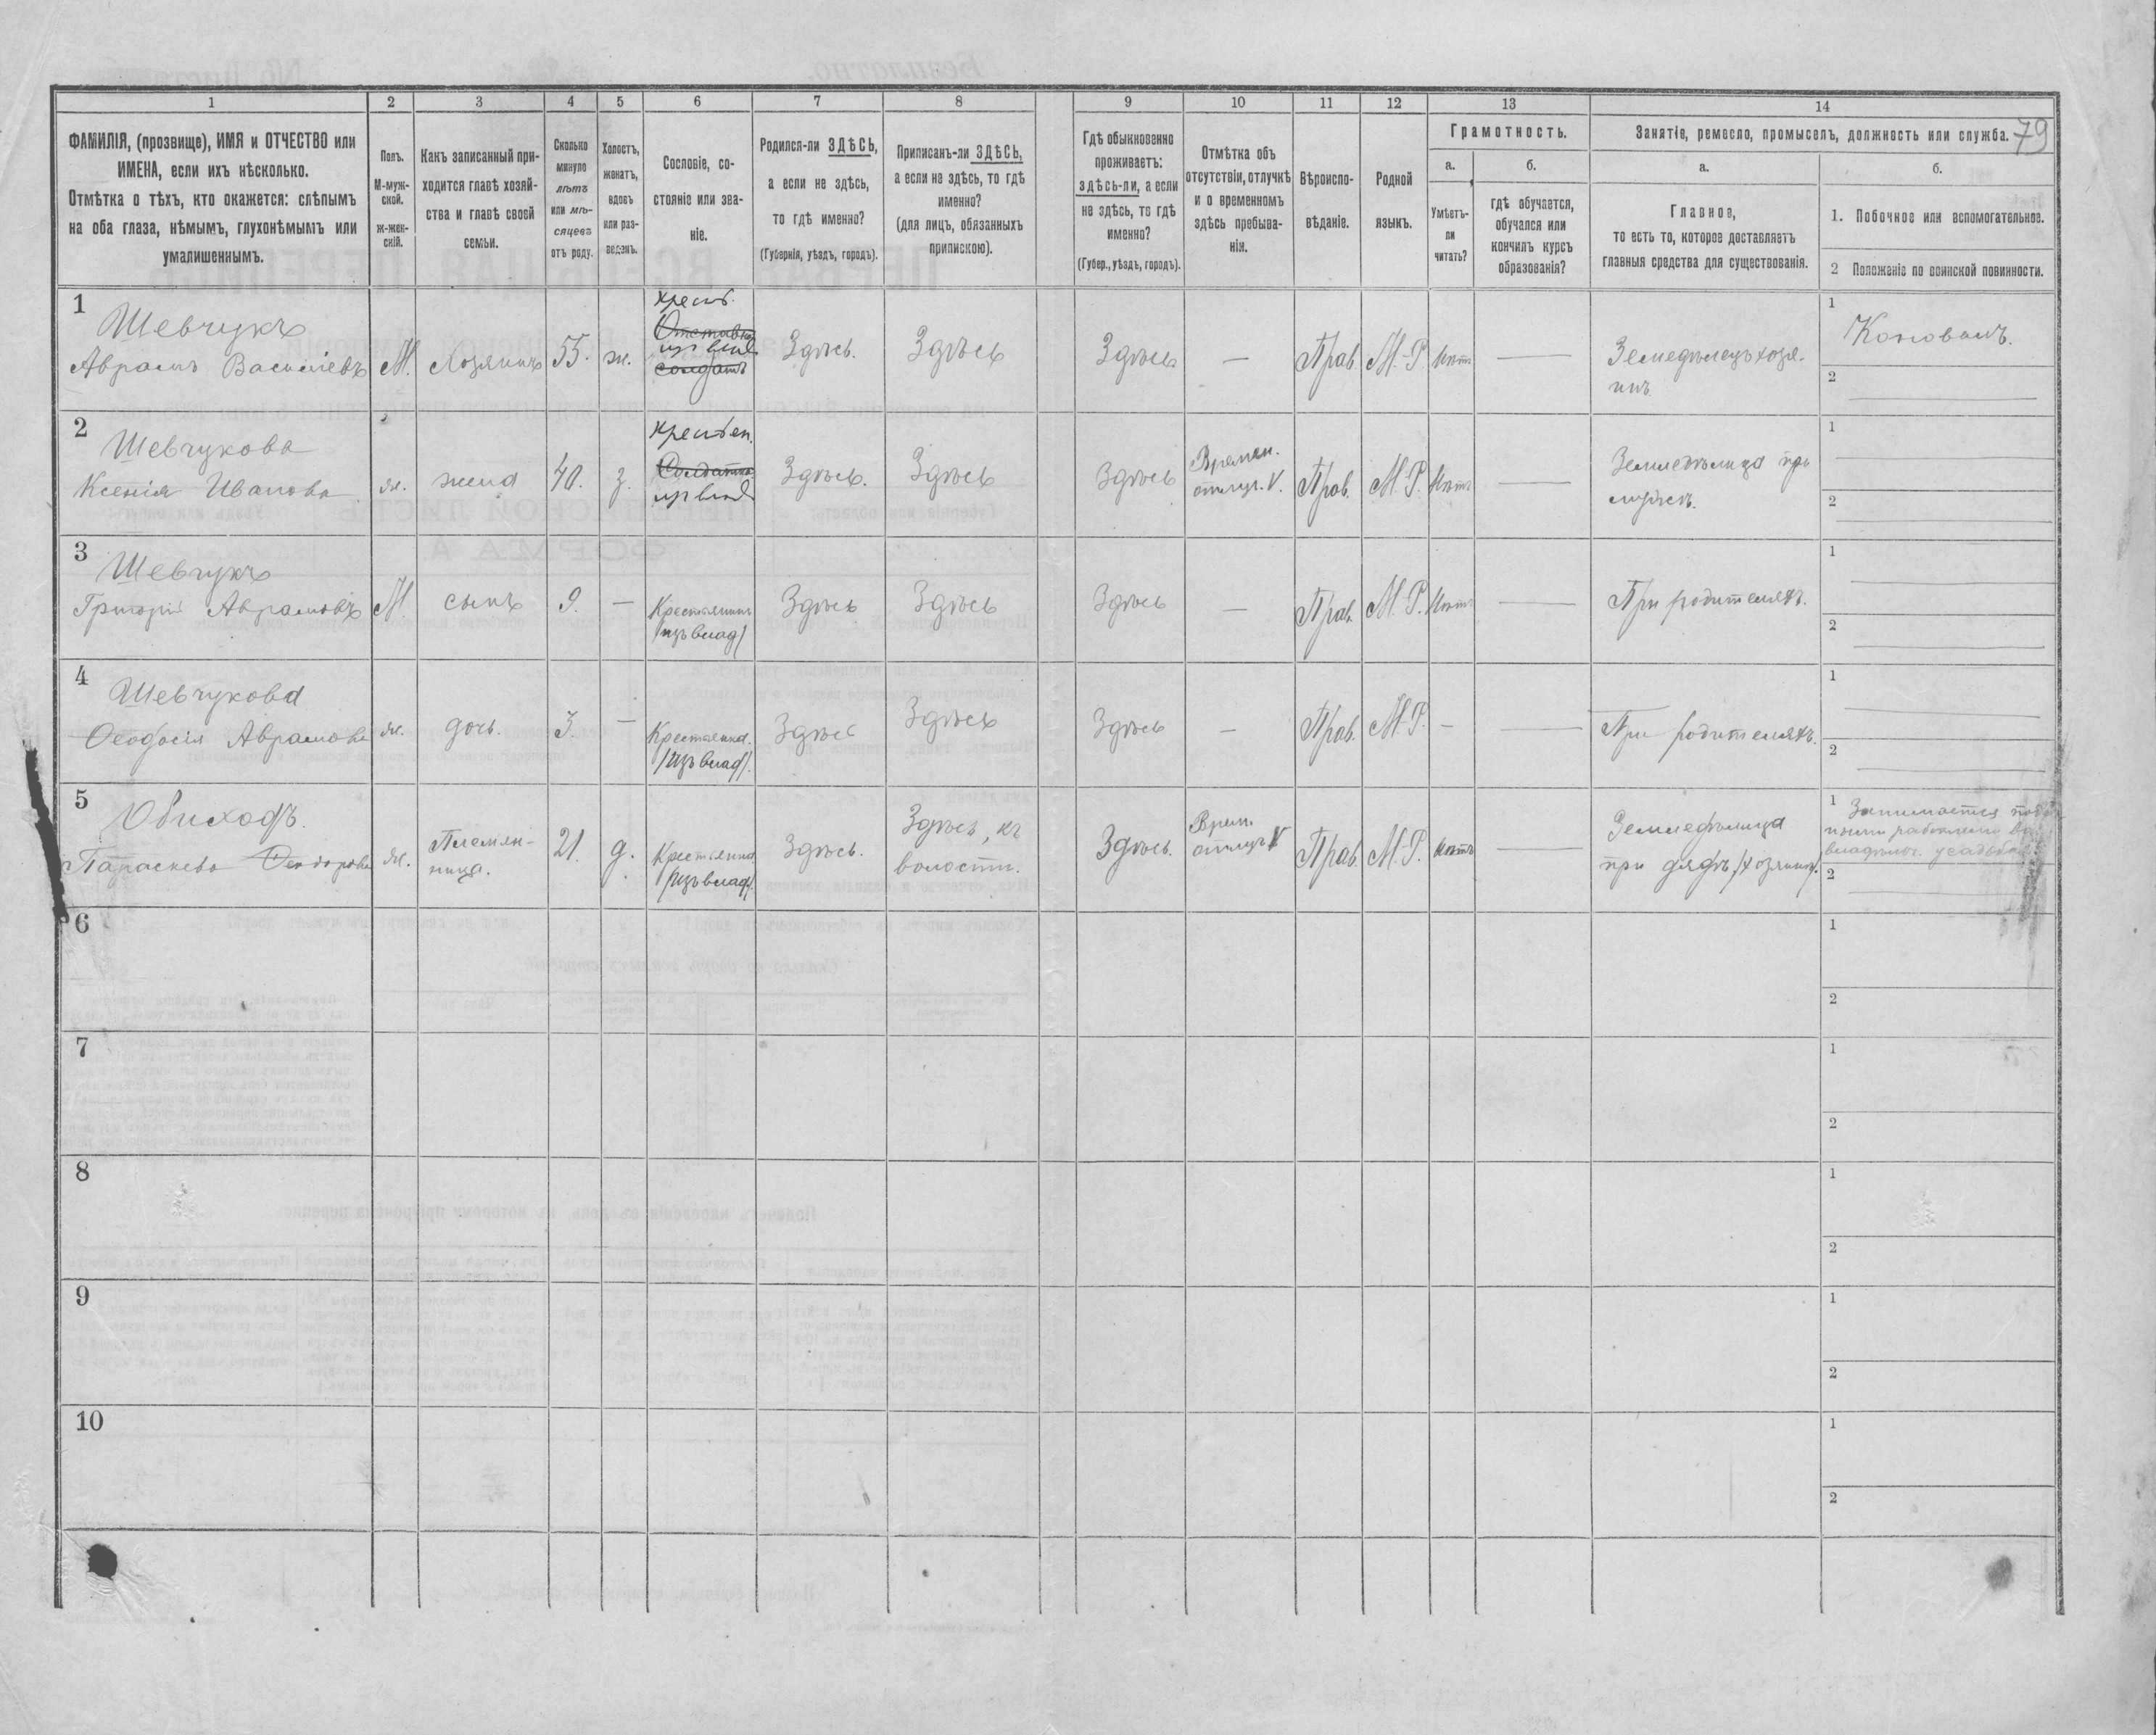 79
1 2 3 4 5 6 7 8 9 10 11 12 13 14
ФАМИЛІЯ, (прозвище), ИМЯ и ОТЧЕСТВО или
ИМЕНА, если ихъ нѣсколько.
Отмѣтка о тѣхъ, кто окажется: слѣпымъ
на оба глаза, нѣмымъ, глухонѣмымъ или
умалишеннымъ.
Полъ.
М-муж-
ской.
ж-жен-
скій.
Какъ записанный при-
ходится главѣ хозяй-
ства и главѣ своей
семьи.
Сколько
минуло
лѣтъ
или мѣ-
сяцевъ
отъ роду.
Холостъ,
женатъ,
вдовъ
или раз-
веденъ.
Сословіе, со-
стояніе или зва-
ніе.
Родился-ли ЗДѢСЬ,
а если не здѣсь,
то гдѣ именно?
(Губернія, уѣздъ, городъ).
Приписанъ-ли ЗДѢСЬ,
а если не здѣсь, то гдѣ
именно?
(для лицъ, обязанныхъ
припискою).
Гдѣ обыкновенно
проживаетъ:
здѣсь-ли, а если
не здѣсь, то гдѣ
именно?
(Губер., уѣздъ, городъ).
Отмѣтка объ
отсутствіи, отлучкѣ
и о временномъ
здѣсь пребыва-
ніи.
Вѣроиспо-
вѣданіе.
Родной
языкъ.
Грамотность.
а.
Умѣетъ-
ли
читать?
б.
гдѣ обучается,
обучался или
кончилъ курсъ
образованія?
Занятіе, ремесло, промыселъ, должность или служба.
а.
Главное,
то есть то, которое доставляетъ
главныя средства для существованія.
б.
1. Побочное или вспомогательное.
2 Положеніе по воинской повинности.
1
Шевчукъ
Аврамъ Васильевъ
М.
Хозяинъ
55.
ж.
крест.
Отставн.
из влад
солдатъ
Здѣсь.
Здѣсь
Здѣсь
—
Прав.
М.-Р.
Нѣтъ
—
Земледѣлецъ хозя-
инъ
1
Коновалъ.
2
2
Шевчукова
Ксенія Иванова
ж.
жена
40.
з.
крестьян.
Солдатка
из влад
Здѣсь.
Здѣсь
Здѣсь
Времен.
отлуч. V.
Прав.
М.-Р.
Нѣтъ
—
Земледѣлица при
мужѣ.
1
2
3
Шевчукъ
Григорій Аврамовъ
М.
сынъ
9.
—
Крестьянинъ
/изъ влад/
Здѣсь
Здѣсь
Здѣсь
—
Прав.
М.-Р.
Нѣтъ
—
При родителяхъ.
1
2
4
Шевчукова
Ѳеодосія Аврамова
ж.
дочь.
3.
—
Крестьянка.
/изъ влад/.
Здѣсь
Здѣсь
Здѣсь
—
Прав.
М.-Р.
—
—
При родителяхъ.
1
2
5
Обиходъ.
Параскева Ѳеодорова
ж.
Племян-
ница.
21.
д.
Крестьянка
/изъ влад/.
Здѣсь.
Здѣсь, къ
волости.
Здѣсь.
Врем.
отлуч V
Прав.
М.-Р.
Нѣтъ
—
Земледѣлица
при дядѣ /хозяинѣ/.
1 Занимается
2
6
1
2
7
1
2
8
1
2
9
1
2
10
1
2